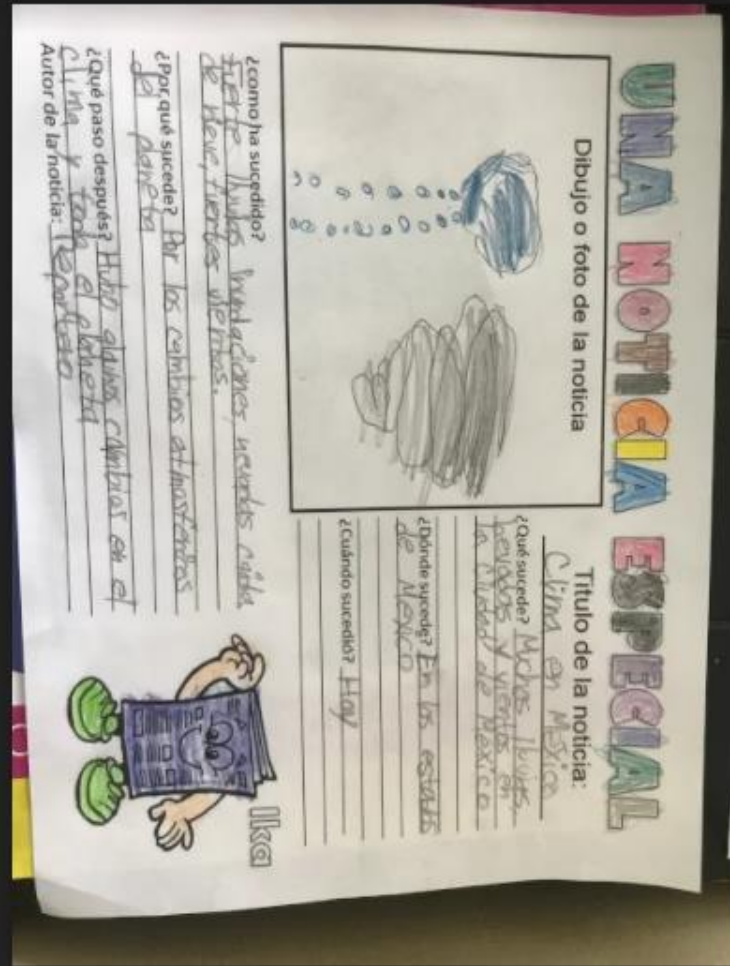 UNA NOTICIA ESPECIAL
Dibujo o foto de la noticia
Titulo de la noticia:
Clima en Mexico
¿Qué sucede? Muchas lluvias,
nevadas y vientos en
la Ciudad de Mexico
¿Dónde sucede? En los estados
de Mexico
¿Cuándo sucedió? Hoy
¿como ha sucedido?
fuerte lluvias inundaciones, nevadas caida
de nieve, fuertes vientos.
¿Por qué sucede? Por los cambios atmosfericos
del paneta
¿Qué paso después? Hubo algunos cambios en el
clima y todo el planeta
Autor de la noticia: Reportera
Ika